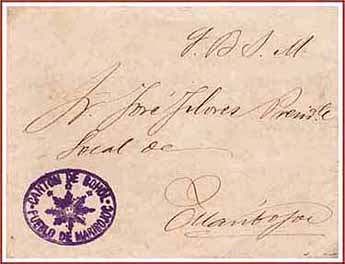 B. S. M.
Sr. José Flores Presidte
Local de
Maribojoc
CANTON DE BOHOL
PUEBLO DE MARIBOJOC